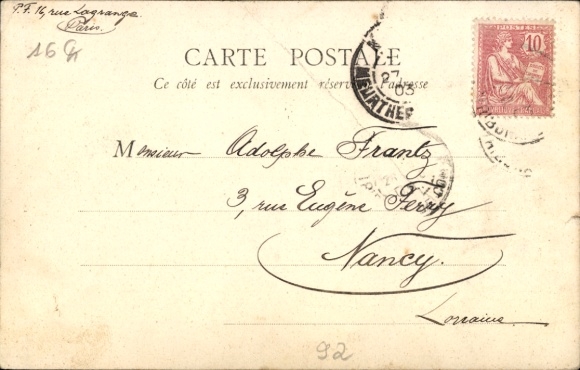 P. F. 16, rue Lagrange.
Paris.
16
CARTE POSTALE
Ce côté est exclusivement réservé à l'adresse
POSTES
10
27
03
MEURTHE
Monsieur Adolphe Frantz
3, rue Eugène Ferry
Nancy.
Lorraine.
92